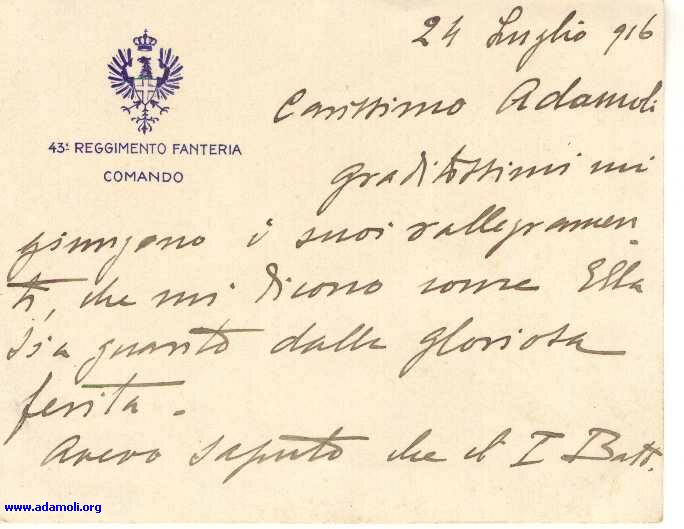 24 Luglio 916
43º REGGIMENTO FANTERIA
COMANDO
Carissimo Adamoli
graditissimi mi
giungono i suoi rallegramen
ti, che mi dicono come Ella
sia guarito dalla gloriosa
ferita.
Avevo saputo che il I Batt.
www.adamoli.org